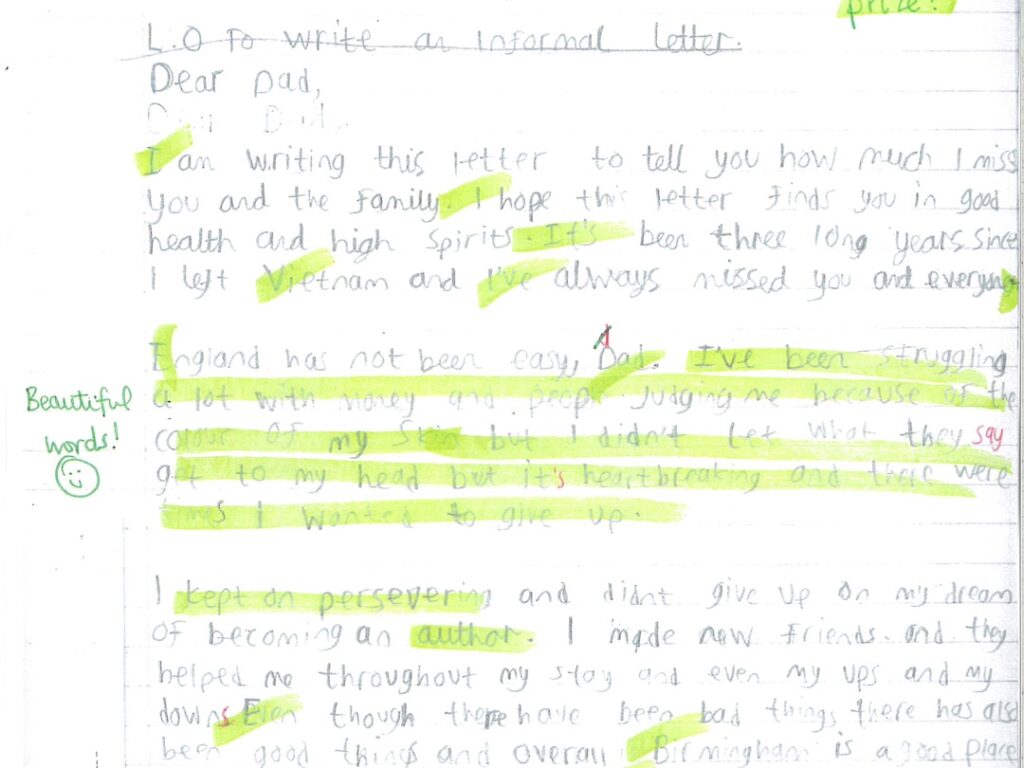 prize!
L.O To write an informal letter.
Dear Dad,
Dear Dad,
I am writing this letter to tell you how much I miss
you and the family. I hope this letter finds you in good
health and high spirits. It's been three long years since
I left Vietnam and I've always missed you and everyone
England has not been easy, Dad. I've been struggling
a lot with money and people judging me because of the
Beautiful words!
colour of my skin but I didn't let what they say
get to my head but it's heartbreaking and there were
times I wanted to give up.
I kept on persevering and didnt give up on my dream
of becoming an author. I made new friends and they
helped me throughout my stay and even my ups and my
downs Even though there have been bad things there has also
been good things and overall Birmingham is a good place